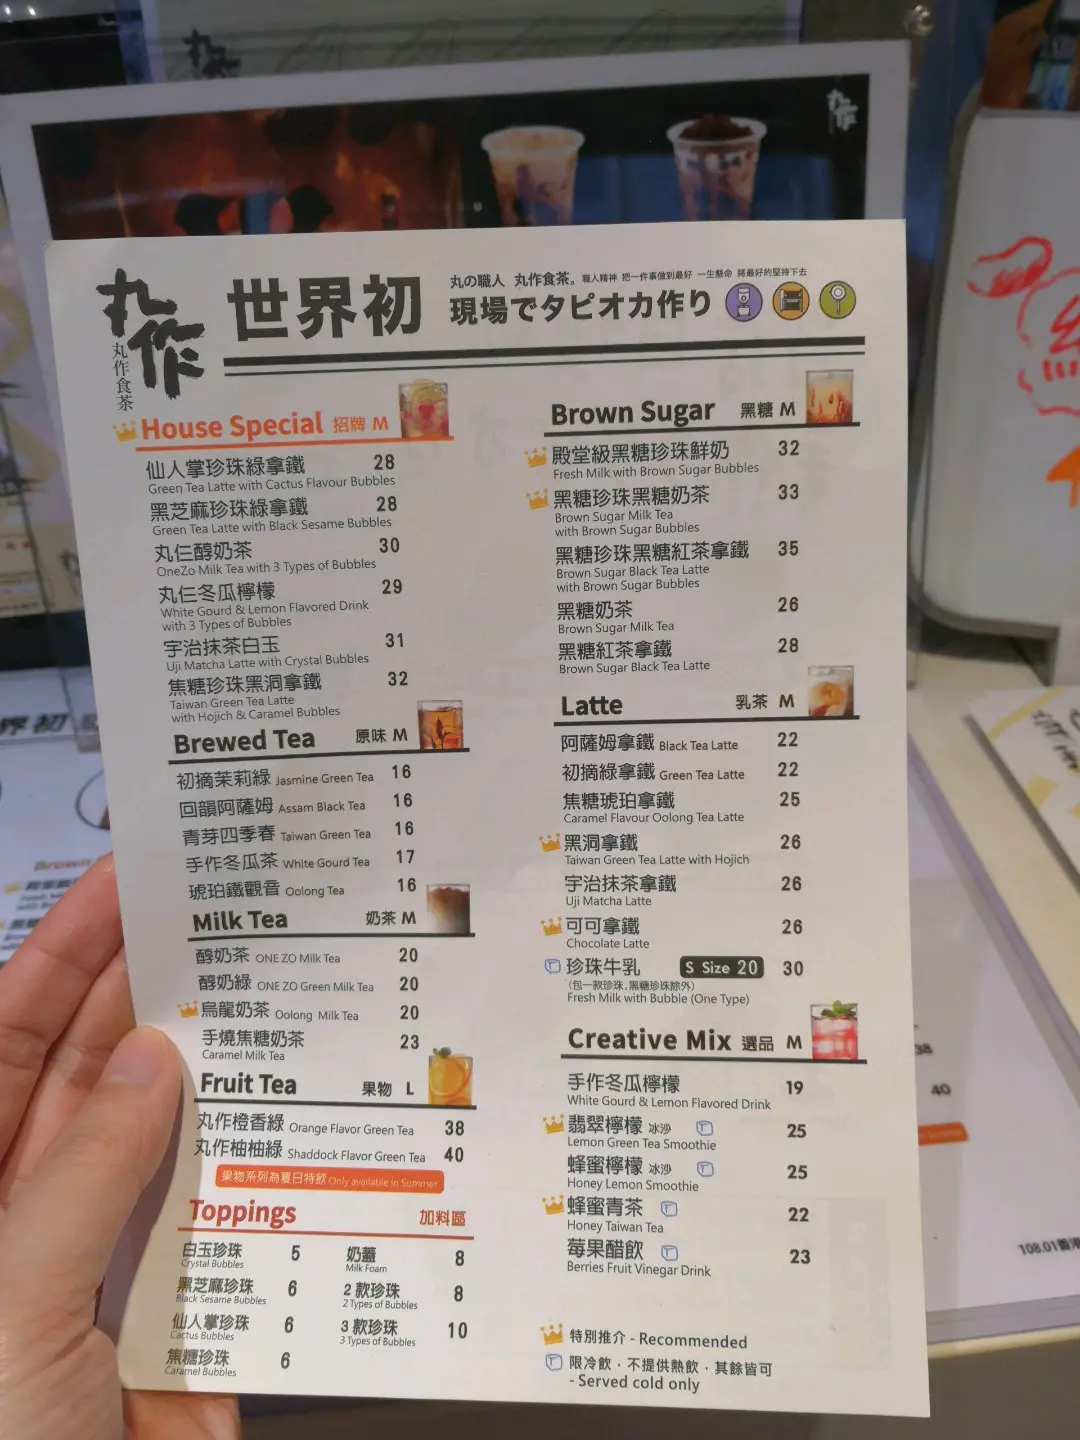 丸作
丸作食茶
世界初
丸の職人 丸作食茶。職人精神 把一件事做到最好 一生懸命 將最好的堅持下去
現場でタピオカ作り
House Special 招牌 M
仙人掌珍珠綠拿鐵 28
Green Tea Latte with Cactus Flavour Bubbles
黑芝麻珍珠綠拿鐵 28
Green Tea Latte with Black Sesame Bubbles
丸仨醇奶茶 30
OneZo Milk Tea with 3 Types of Bubbles
丸仨冬瓜檸檬 29
White Gourd & Lemon Flavored Drink
with 3 Types of Bubbles
宇治抹茶白玉 31
Uji Matcha Latte with Crystal Bubbles
焦糖珍珠黑洞拿鐵 32
Taiwan Green Tea Latte
with Hojich & Caramel Bubbles
Brewed Tea 原味 M
初摘茉莉綠 Jasmine Green Tea 16
回韻阿薩姆 Assam Black Tea 16
青芽四季春 Taiwan Green Tea 16
手作冬瓜茶 White Gourd Tea 17
琥珀鐵觀音 Oolong Tea 16
Milk Tea 奶茶 M
醇奶茶 ONE ZO Milk Tea 20
醇奶綠 ONE ZO Green Milk Tea 20
烏龍奶茶 Oolong Milk Tea 20
手燒焦糖奶茶 23
Caramel Milk Tea
Fruit Tea 果物 L
丸作橙香綠 Orange Flavor Green Tea 38
丸作柚柚綠 Shaddock Flavor Green Tea 40
果物系列為夏日特飲 Only available in Summer
Toppings 加料區
白玉珍珠 5
Crystal Bubbles
黑芝麻珍珠 6
Black Sesame Bubbles
仙人掌珍珠 6
Cactus Bubbles
焦糖珍珠 6
Caramel Bubbles
奶蓋 8
Milk Foam
2 款珍珠 8
2 Types of Bubbles
3 款珍珠 10
3 Types of Bubbles
Brown Sugar 黑糖 M
殿堂級黑糖珍珠鮮奶 32
Fresh Milk with Brown Sugar Bubbles
黑糖珍珠黑糖奶茶 33
Brown Sugar Milk Tea
with Brown Sugar Bubbles
黑糖珍珠黑糖紅茶拿鐵 35
Brown Sugar Black Tea Latte
with Brown Sugar Bubbles
黑糖奶茶 26
Brown Sugar Milk Tea
黑糖紅茶拿鐵 28
Brown Sugar Black Tea Latte
Latte 乳茶 M
阿薩姆拿鐵 Black Tea Latte 22
初摘綠拿鐵 Green Tea Latte 22
焦糖琥珀拿鐵 25
Caramel Flavour Oolong Tea Latte
黑洞拿鐵 26
Taiwan Green Tea Latte with Hojich
宇治抹茶拿鐵 26
Uji Matcha Latte
可可拿鐵 26
Chocolate Latte
珍珠牛乳 S Size 20 30
(包一款珍珠,黑糖珍珠除外)
Fresh Milk with Bubble (One Type)
Creative Mix 選品 M
手作冬瓜檸檬 19
White Gourd & Lemon Flavored Drink
翡翠檸檬 冰沙 25
Lemon Green Tea Smoothie
蜂蜜檸檬 冰沙 25
Honey Lemon Smoothie
蜂蜜青茶 22
Honey Taiwan Tea
莓果醋飲 23
Berries Fruit Vinegar Drink
特別推介 - Recommended
限冷飲,不提供熱飲,其餘皆可
- Served cold only
丸作
界初
Brown
38
40
Summer